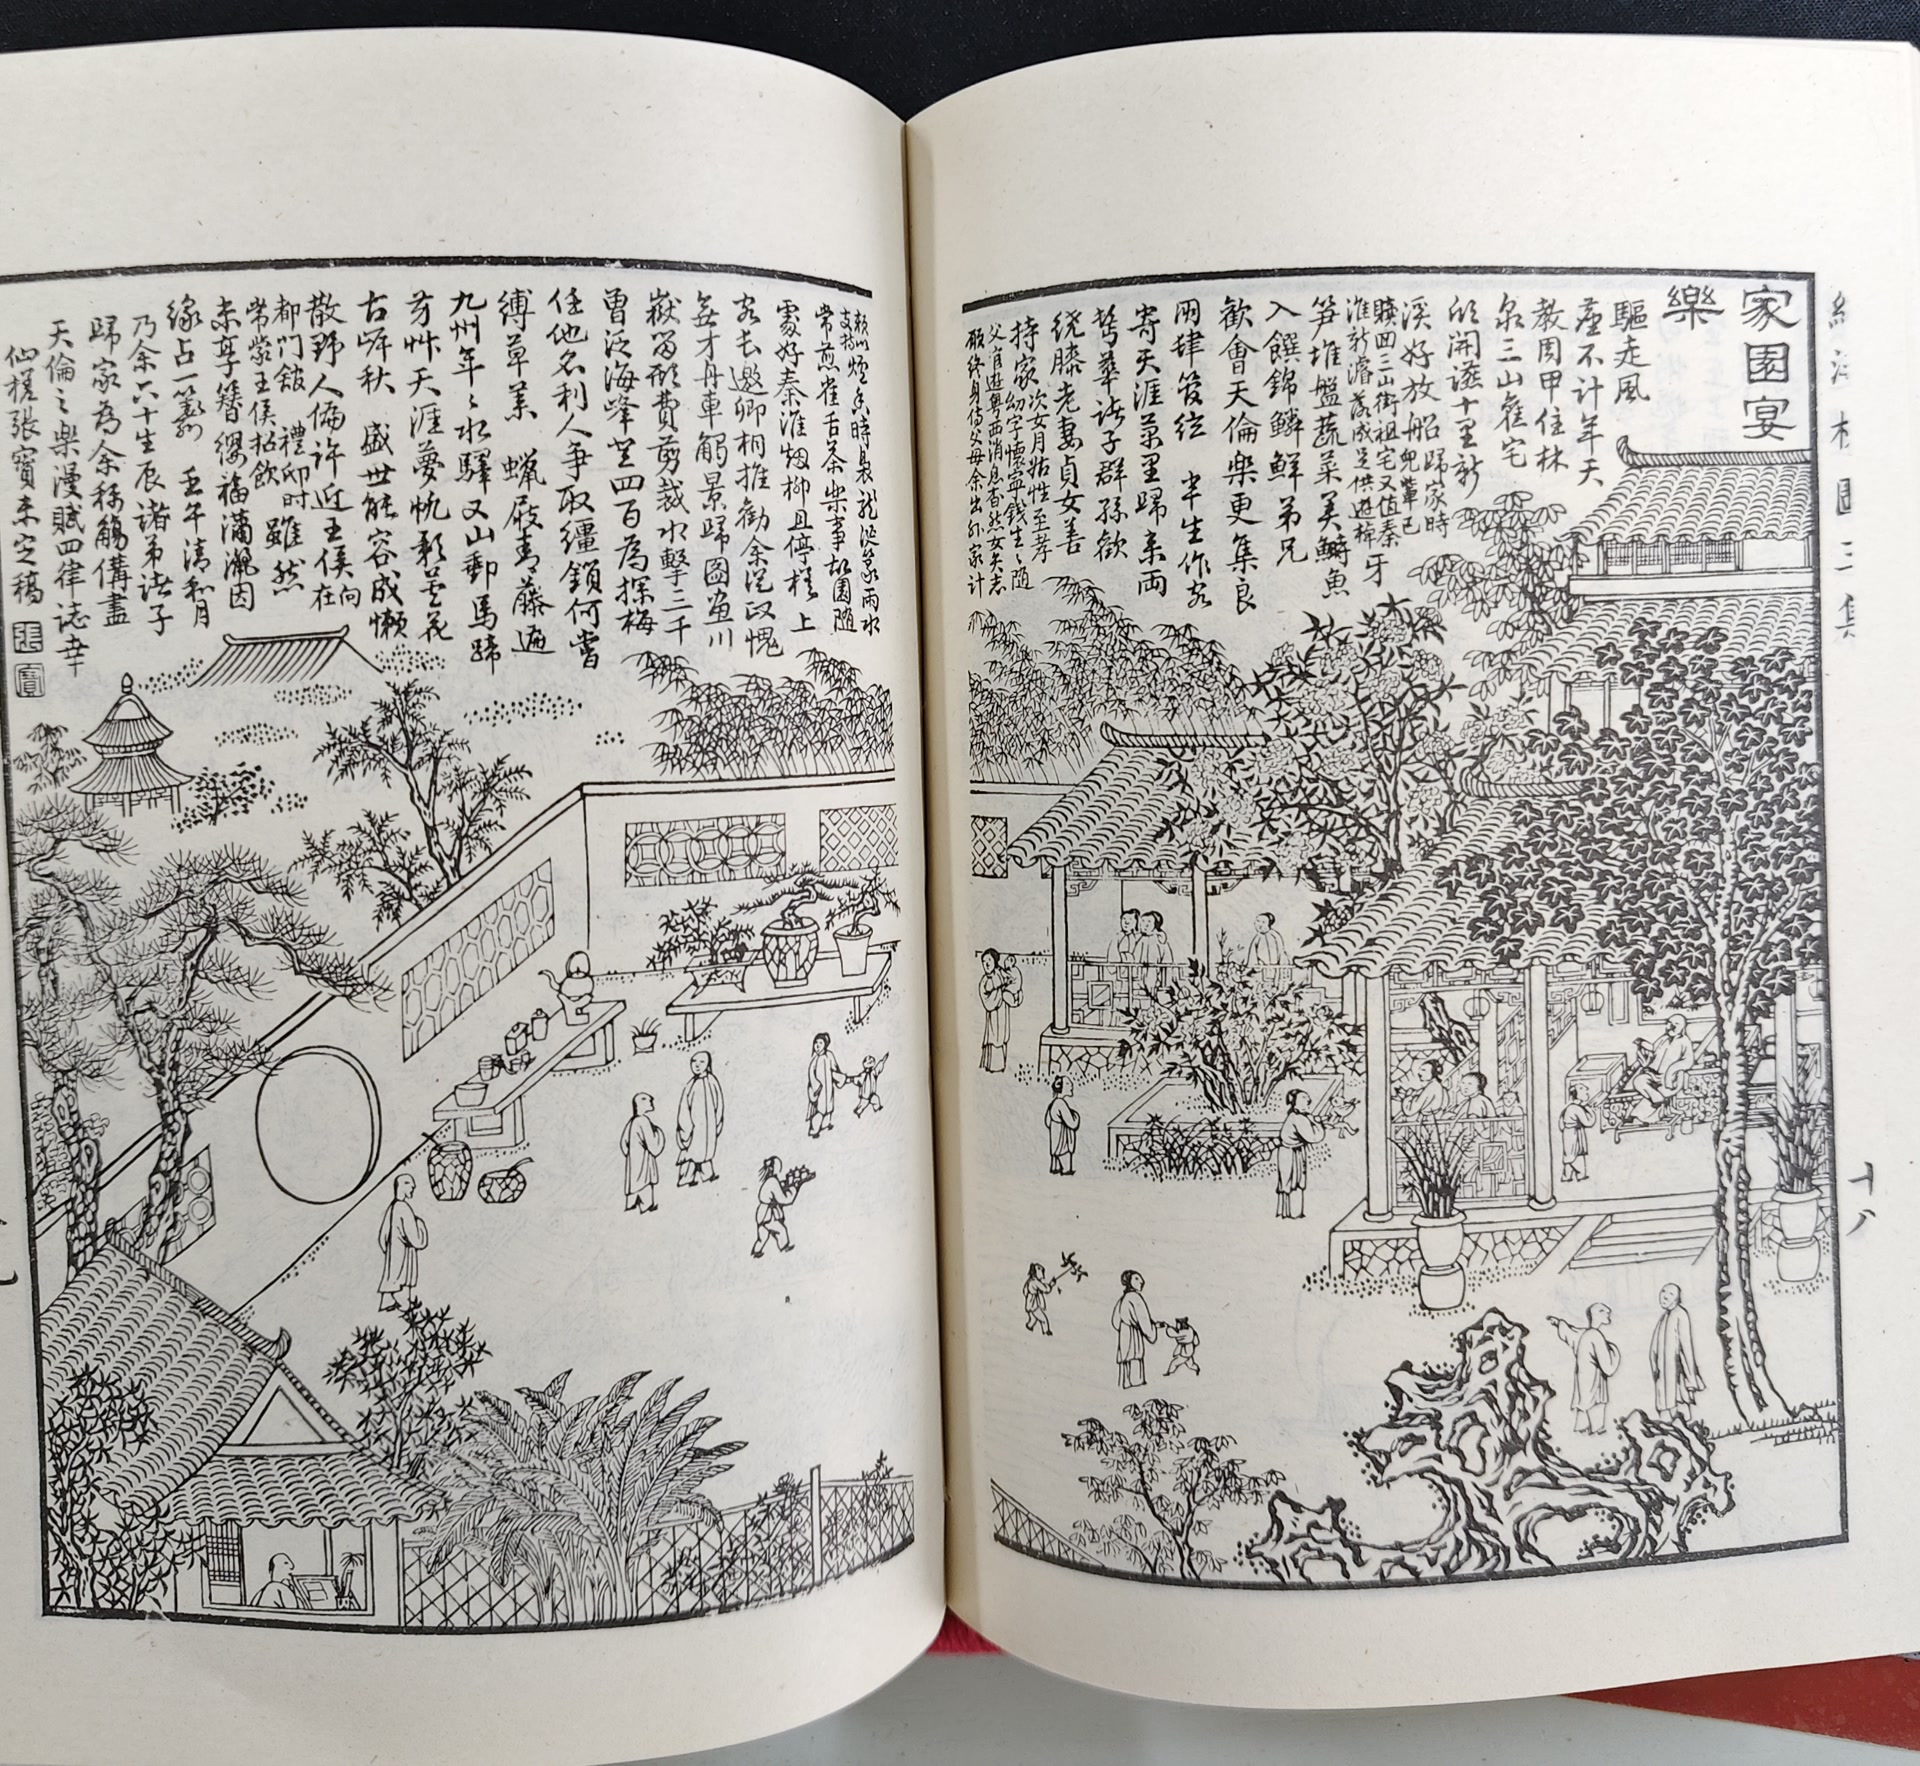 家園宴
樂
驅走風
塵不計年天
教周甲住林
泉三山舊宅
欣開讌十里新
溪好放船歸家時
贖回三山街祖宅又值秦
淮新濬落成足供遊棹牙
笋堆盤蔬菜美鰣魚
入饌錦鱗鮮弟兄
歡會天倫樂更集良
朋肆管絃 半生作客
寄天涯萬里歸來兩
鬢華諸子群孫歡
繞膝老妻貞女善
持家次女月姑性至孝
幼字懷寧錢生生隨
父官遊粤西消息杳然女矢志
願終身侍父母余出外家計
賴以
支持
常煎雀舌茶樂事故園隨
處好秦淮烟柳且停橈 上
客去邀卿相推勸余從政愧
無才丹車觸景歸圖畫川
嶽留形費剪裁水擊三千
曾泛海峰登四百為探梅
任他名利人爭取繮鎖何嘗
縛草萊 蠟屐青藤遍
九州年年水驛又山郵馬蹄
芳艸天涯夢帆影蘆花
古岸秋 盛世能容成懶
散野人偏許近王侯向在
都門館禮邸時
常蒙王侯招飲雖然
未享簪纓福瀟灑因
緣占一籌 壬午清和月
乃余六十生辰諸弟諸子
歸家為余稱觴備盡
天倫之樂漫賦四律誌幸
仙槎張寶未定稿
張
寶
十八